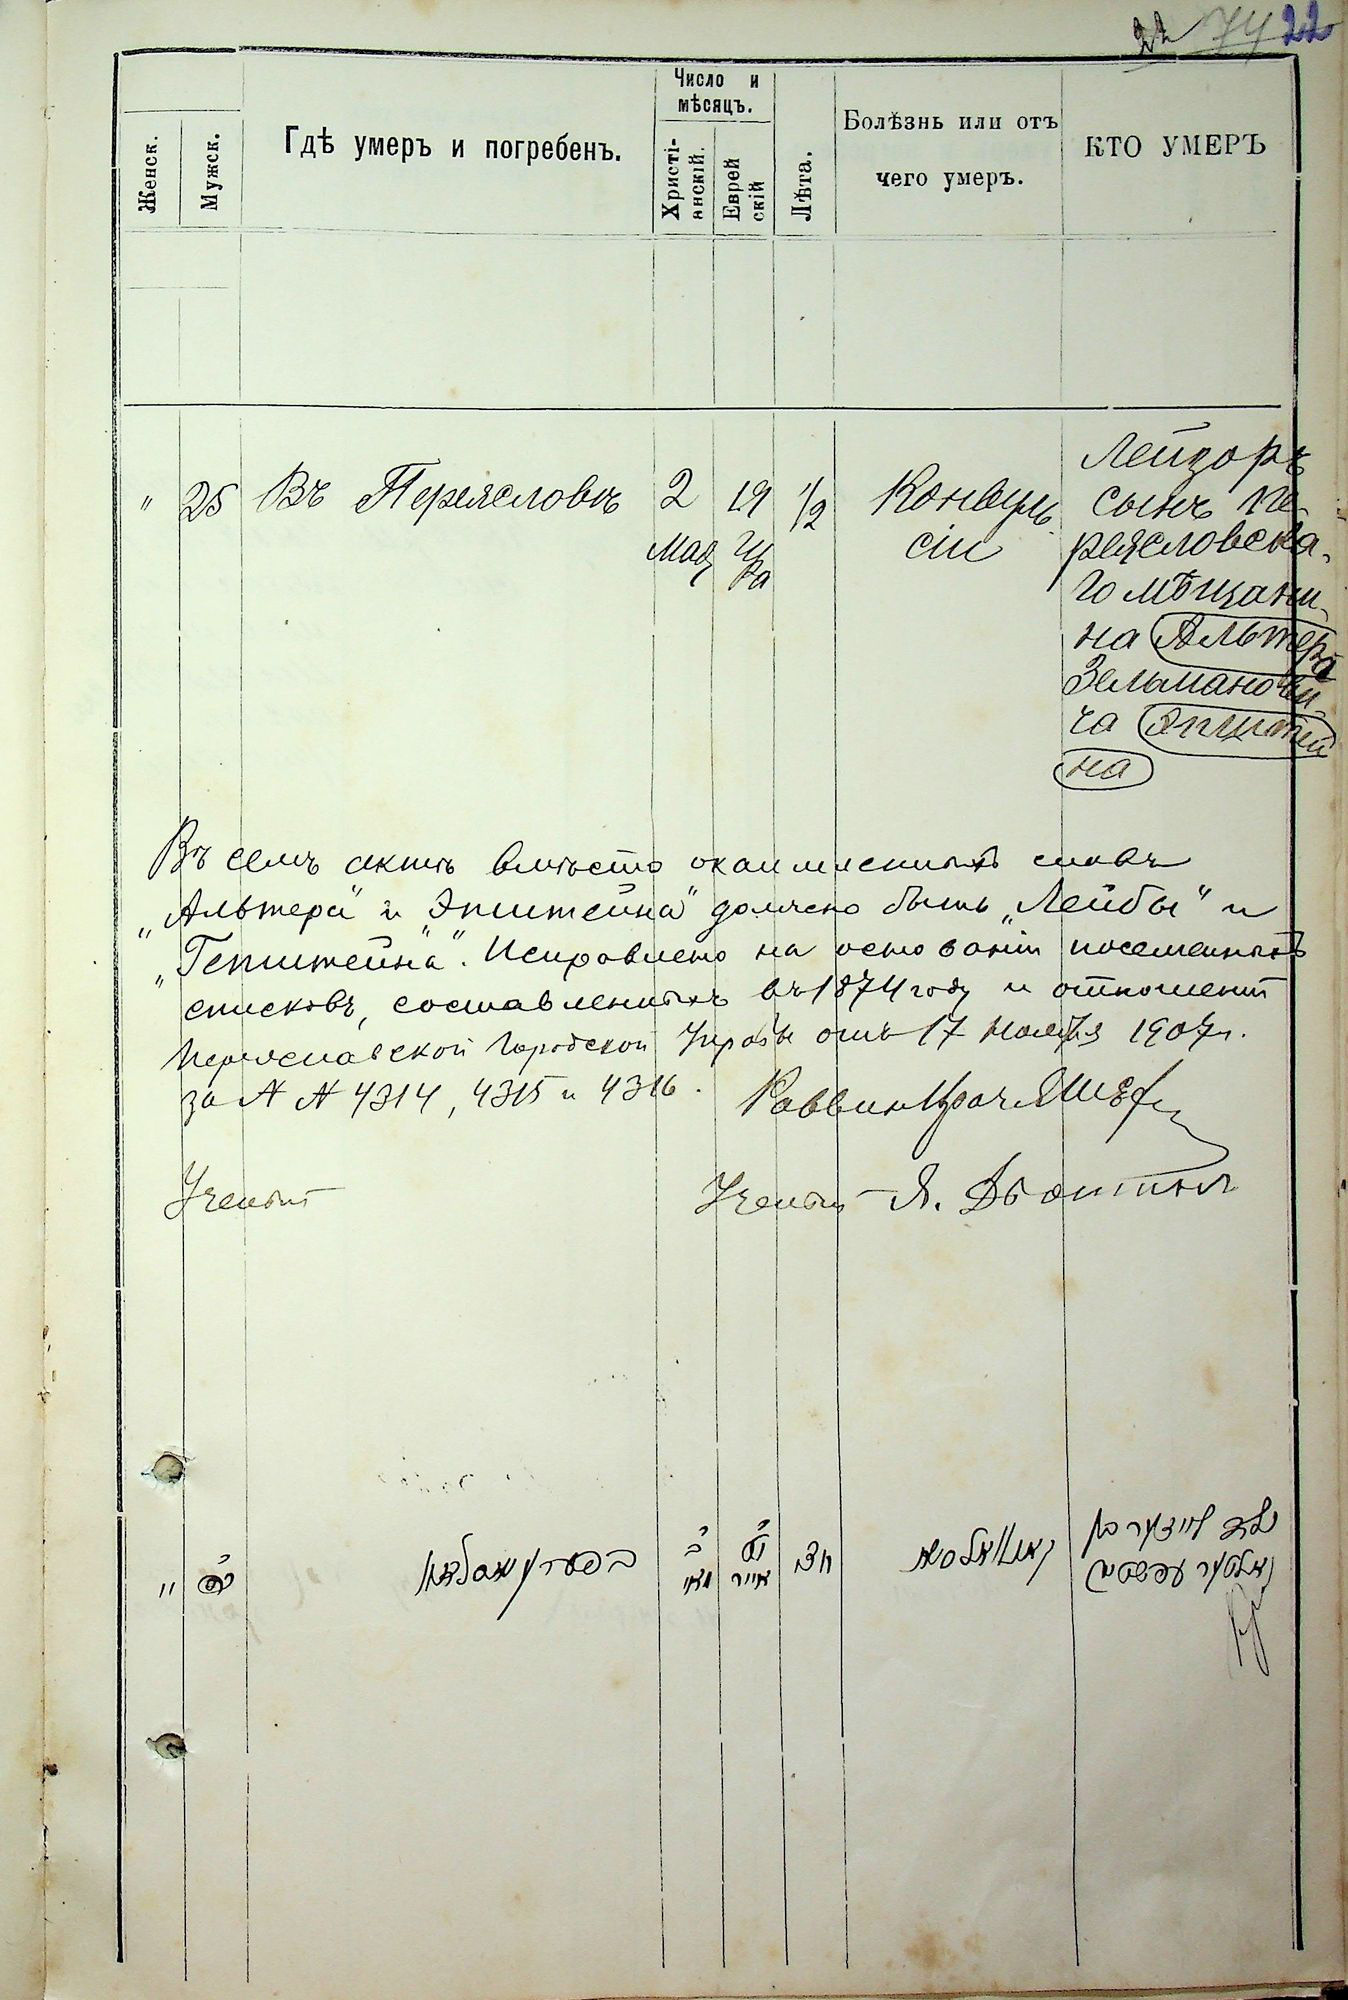 22 74 22
Женск.
Мужск.
Гдѣ умеръ и погребенъ.
Число и
мѣсяцъ.
Христі-
анскій.
Еврей
скій
Лѣта.
Болѣзнь или отъ
чего умеръ.
КТО УМЕРЪ
" 25 Въ Переясловѣ 2 19 1/2 Конвуль
Мая Іи
ра
сіи
Лейзоръ
сынъ Пе-
реясловска-
го мѣщани-
на Альтера
Зельманови-
ча Эпштей
на
Въ семъ актѣ вмѣсто окаймленныхъ словъ
„Альтера" и „Эпштейна" должно быть „Лейбы" и
„Гепштейна". Исправлено на основаніи посемейныхъ
списковъ, составленныхъ въ 1874 году и отношеній
Переяславской Городской Управы отъ 17 Ноября 1907 г.
за № № 4314, 4315 и 4316.
Раввин Врач
Ученый
Ученый Я.
" כה
ב
מאי
יט
אייר
חצי
ילד לייזער בן
אלטער עפשטיין